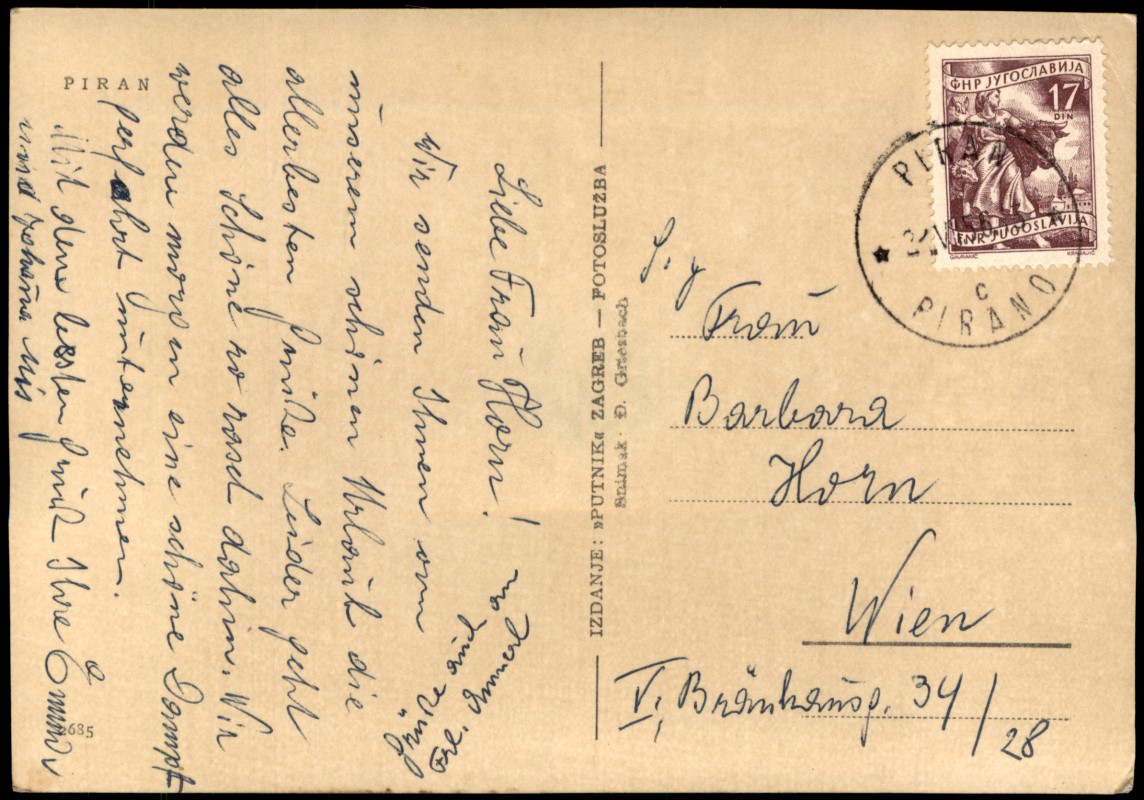 PIRAN
Liebe Frau Horn!
Wir senden Ihnen von
unserem schönen Urlaub die
allerbesten Grüße. Leider geht
alles Schöne so rasch dahin. Wir
werden morgen eine schöne Dampf
perfahrt unternehmen.
Mit den besten Grüßen Ihre Emma
und
Grüße auch
an
Frl.
2685
IZDANJE: »PUTNIK« ZAGREB — FOTOSLUŽBA
Snimak · Đ. Griesbach
ФНР ЈУГОСЛАВИЈА
17
DIN
FNR JUGOSLAVIJA
PIRAN
C
PIRANO
Frau
Barbara
Horn
Wien
V., Bräuhausg. 34/
28